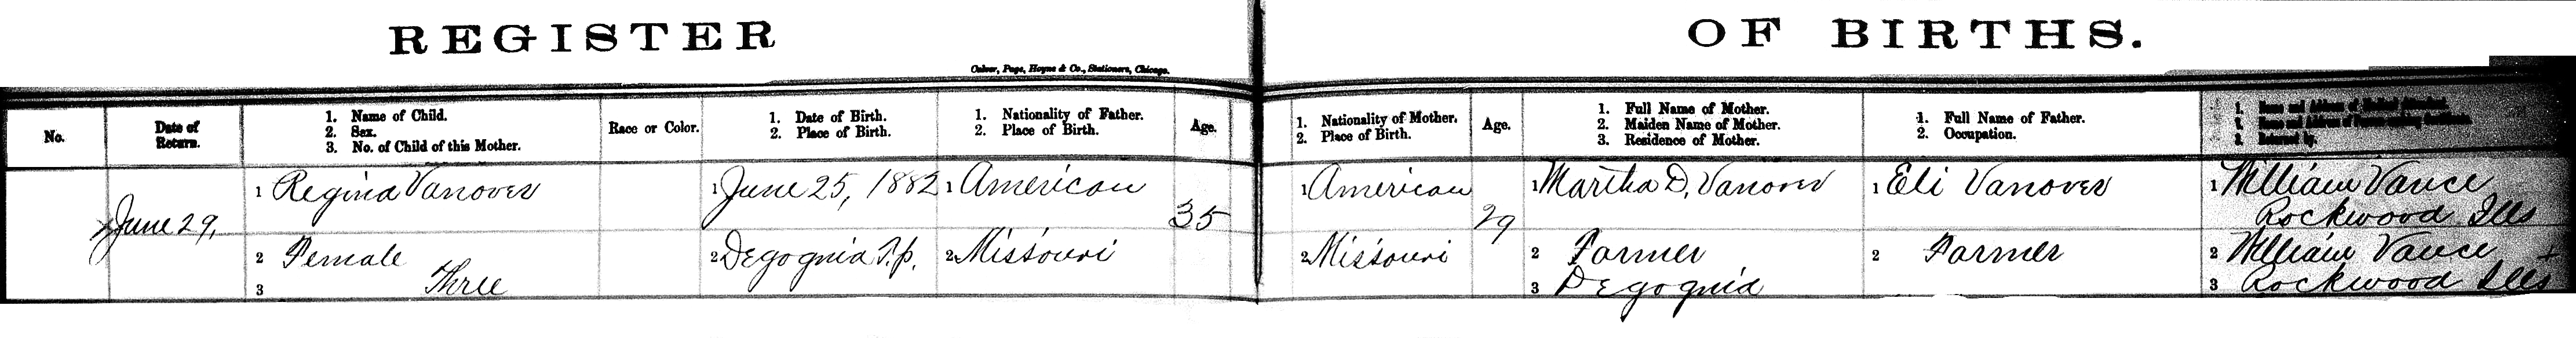 REGISTER OF BIRTHS.
Culver, Page, Hoyne & Co., Stationers, Chicago.
No.
Date of
Return.
1. Name of Child.
2. Sex.
3. No. of Child of this Mother.
Race or Color.
1. Date of Birth.
2. Place of Birth.
1. Nationality of Father.
2. Place of Birth.
Age.
1. Nationality of Mother.
2. Place of Birth.
Age.
1. Full Name of Mother.
2. Maiden Name of Mother.
3. Residence of Mother.
1. Full Name of Father.
2. Occupation.
1. Name and Address of Medical Attendant.
2. Name and Address of
3. Returned by.
June 29,
1 Regina Vanover
2 Female
3 Three
1 June 25, 1882
2 Degognia T.p.
1 American
2 Missouri
35
1 American
2 Missouri
29
1 Martha D, Vanover
2 Farmer
3 Degognia
1 Eli Vanover
2 Farmer
1 William Vance
Rockwood Ills
2 William Vance +
3 Rockwood Ills